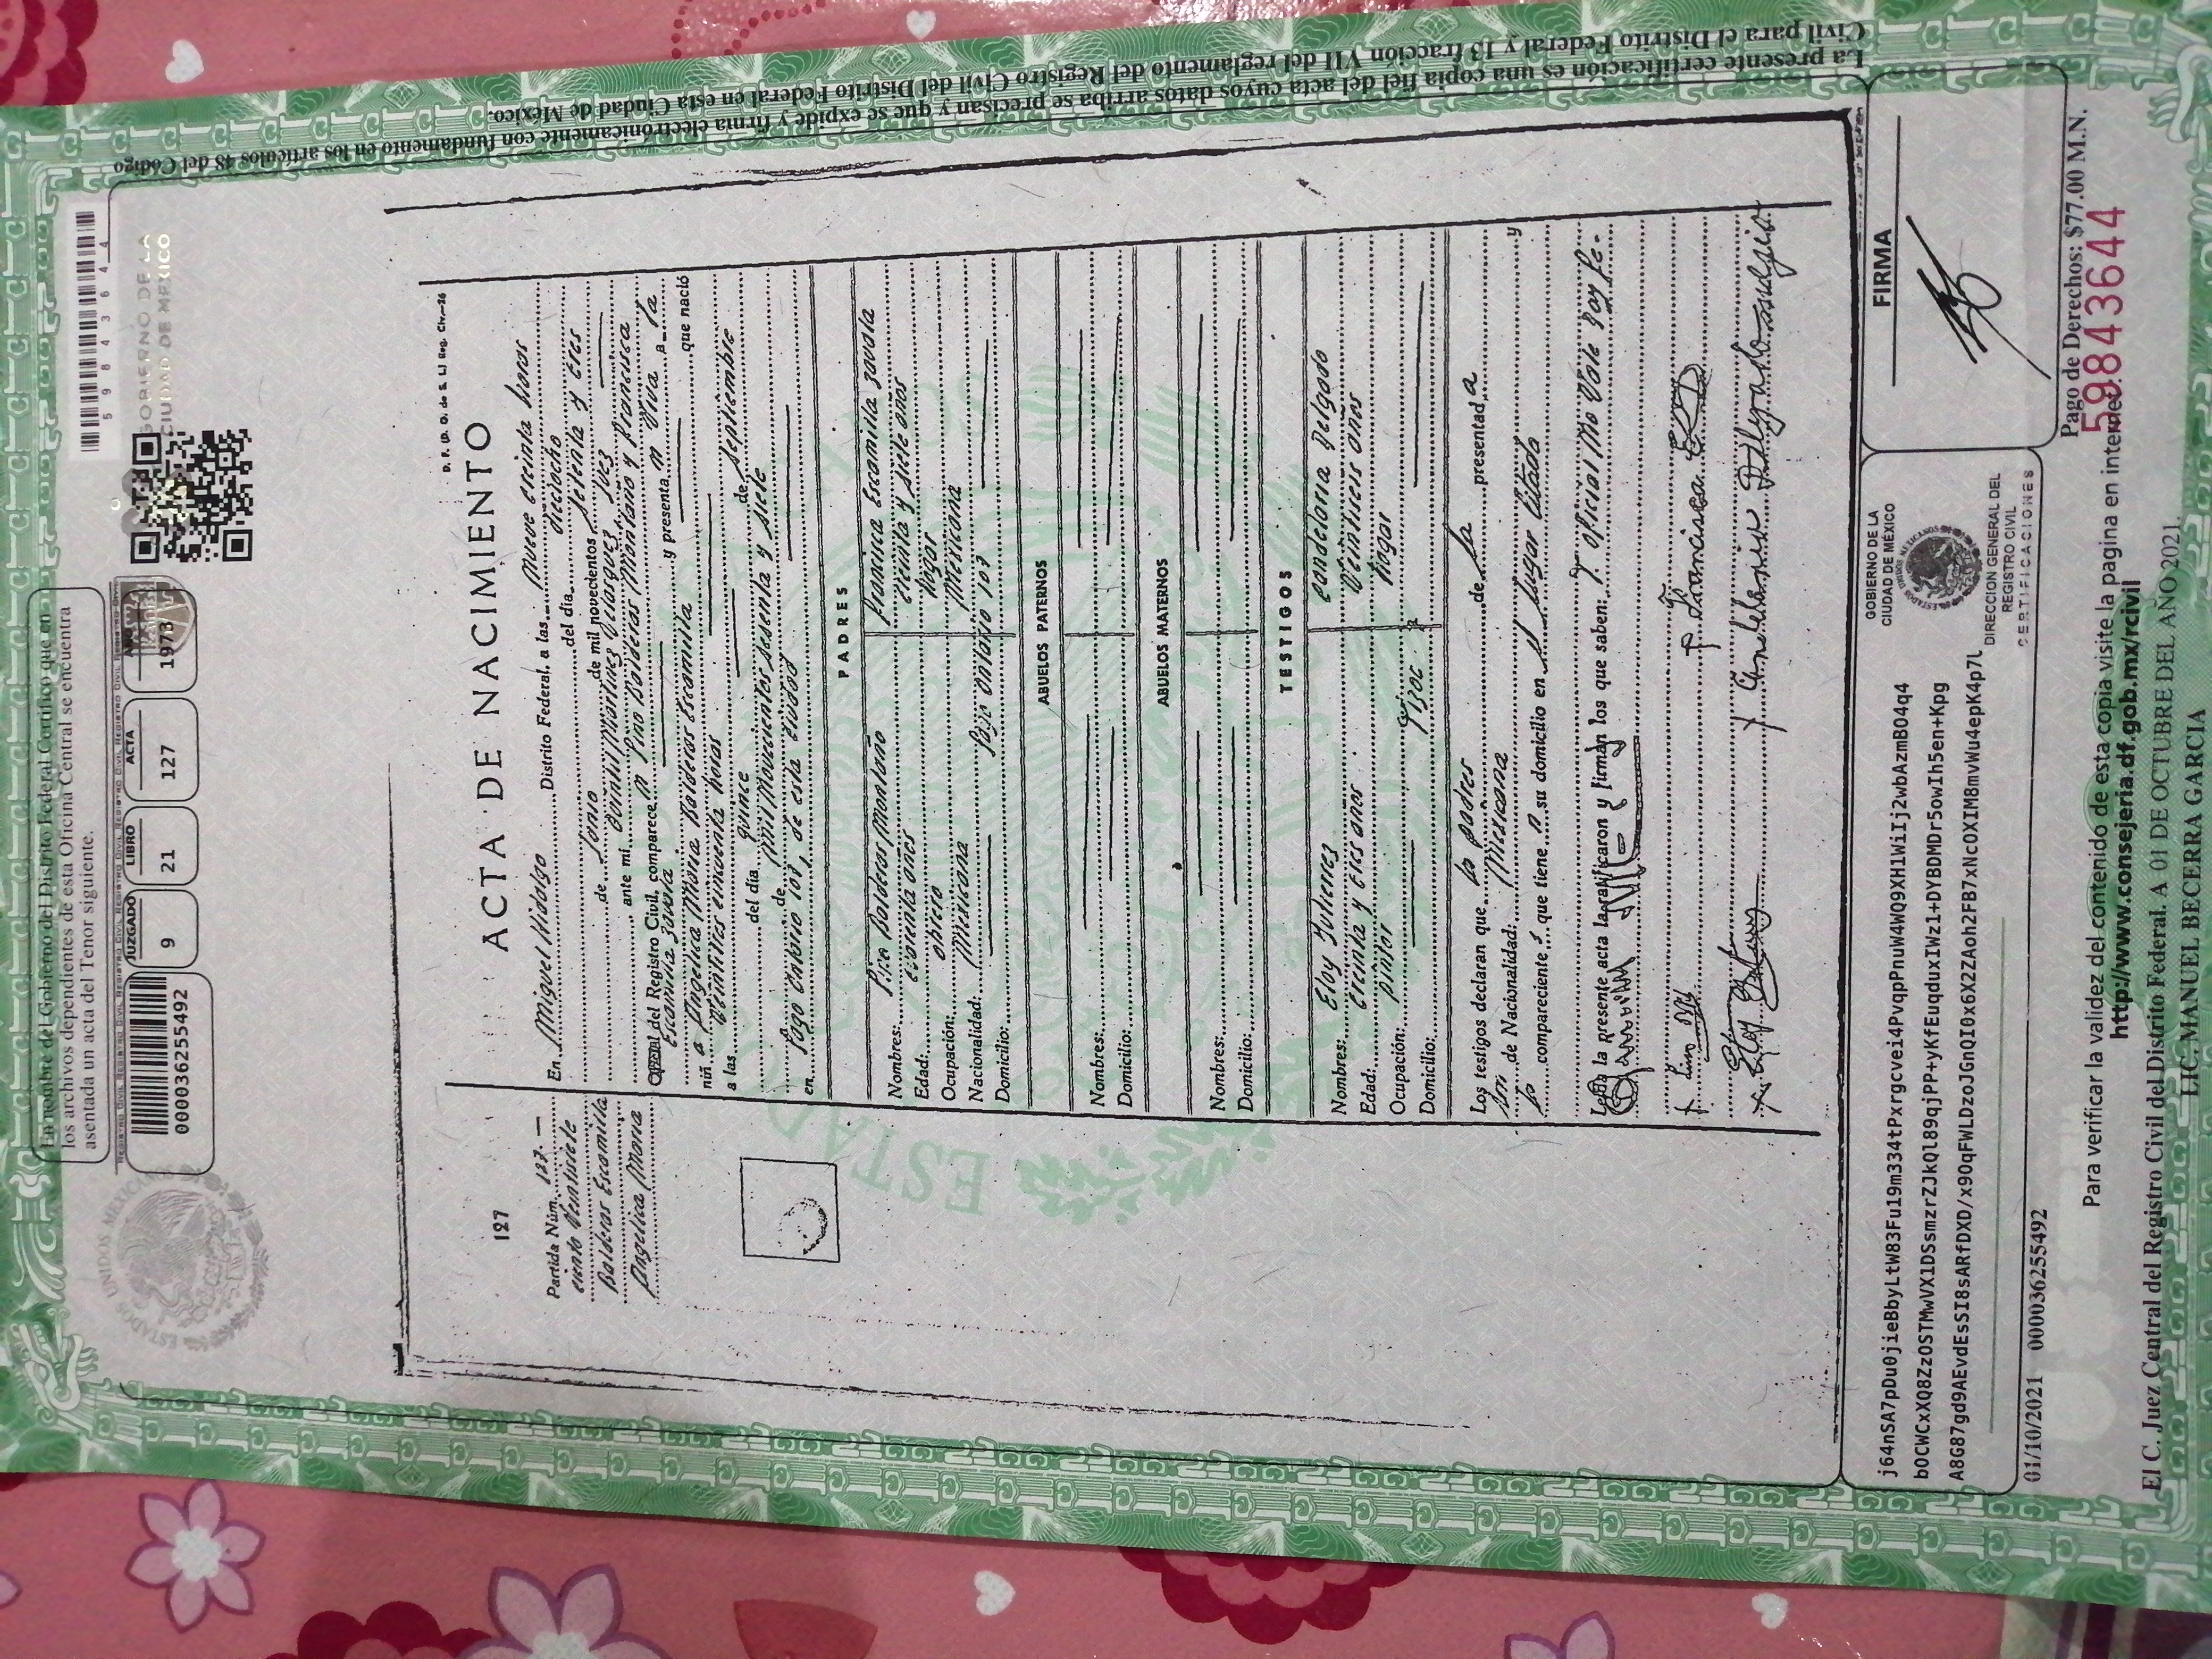 En nombre del Gobierno del Distrito Federal Certifico que en
los archivos dependientes de esta Oficina Central se encuentra
asentada un acta del Tenor siguiente.
59843644
GOBIERNO DE LA
CIUDAD DE MEXICO
ESTADOS UNIDOS MEXICANOS
JUZGADO LIBRO ACTA AÑO
00003625549​2 9 21 127 1973
D. F. (D. O. de S. L) Reg. Civ.—26
127 ACTA DE NACIMIENTO
Partida Núm. 127.—
ciento veintisiete
Balderas Escamilla
Angelica Maria
En Miguel Hidalgo Distrito Federal, a las nueve treinta horas
del día dieciocho
de Junio de mil novecientos setenta y tres
ante mi Quintil Martinez Velazquez Juez
del Registro Civil, comparecen Pino Balderas Montaño y Francisca
Escamilla Zavala y presentan viva a la
niña Angelica Maria Balderas Escamilla que nació
a las veintitres cincuenta horas
del día quince de septiembre
de mil novecientos sesenta y siete
en Lago Ontario 107, de esta ciudad
PADRES
Nombres: Pino Balderas Montaño Francisca Escamilla Zavala
Edad: cuarenta años treinta y siete años
Ocupación: obrero hogar
Nacionalidad: Mexicana Mexicana
Domicilio: Lago Ontario 107
ABUELOS PATERNOS
Nombres:
Domicilio:
ABUELOS MATERNOS
Nombres:
Domicilio:
TESTIGOS
Nombres: Eloy Gutierrez Candeloria Delgado
Edad: treinta y tres años veintiseis años
Ocupación: pintor hogar
Domicilio:
Los testigos declaran que los padres de la presentada
son de Nacionalidad: Mexicana y
los comparecientes que tienen su domicilio en el lugar citado
la presente acta la ratificaron y firman los que saben: Oficial No Vale Doy fe.
Francisca
Candelaria Delgado
j64nSA7pDu0jieBbyLtW83Fu19m334tPxrgcvei4PvqpPnuW4WQ9XH1WiIj2wbAzmBO4q4
bOCWCxXQ8ZzOSTMwVX1DSsmzrZJkQl89qjPP+yKfEuqduxIWz1+DYBDMDr5owIh5en+Kpg
A8G87gd9AEvdEsSI8sARfDXD/x9OqFWLDzoJGnQI0x6X2ZAoh2FB7xNcOXIM8mvWu4epK4p7l
GOBIERNO DE LA
CIUDAD DE MÉXICO
DIRECCION GENERAL DEL
REGISTRO CIVIL
CERTIFICACIONES
FIRMA
01/10/2021 000036255492
Pago de Derechos: $77.00 M.N.
59843644
Para verificar la validez del contenido de esta copia visite la pagina en internet:
http://www.consejeria.df.gob.mx/rcivil
El C. Juez Central del Registro Civil del Distrito Federal. A 01 DE OCTUBRE DEL AÑO 2021.
LIC. MANUEL BECERRA GARCIA
La presente certificación es una copia fiel del acta cuyos datos arriba se precisan y que se expide y firma electrónicamente con fundamento en los artículos 48 del Código
Civil para el Distrito Federal y 13 fracción VII del reglamento del Registro Civil del Distrito Federal en esta Ciudad de México.